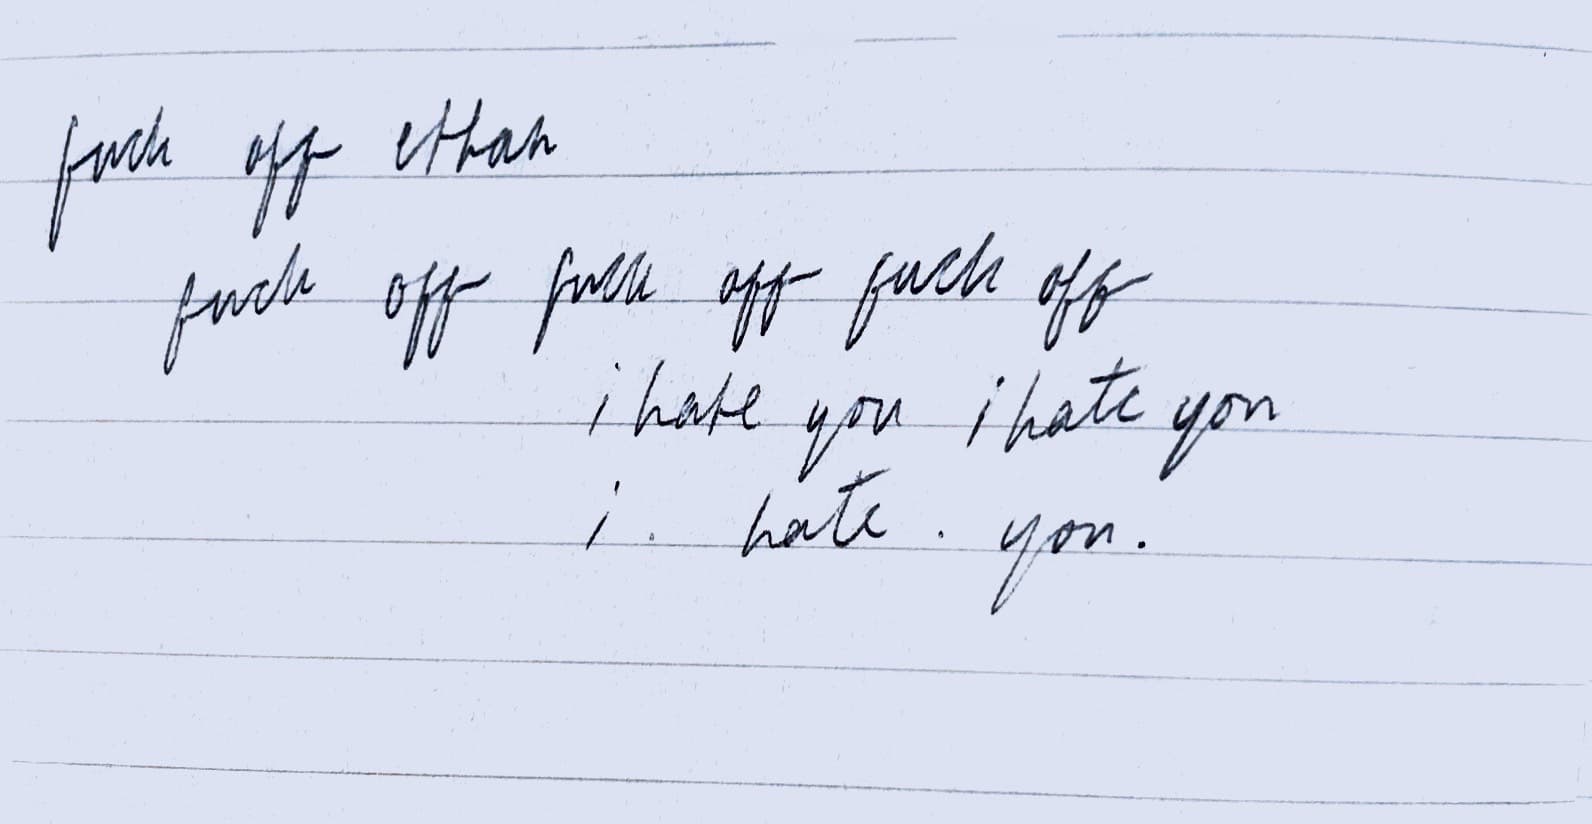 fuck off ethan
fuck off fuck off fuck off
i hate you i hate you
i. hate. you.